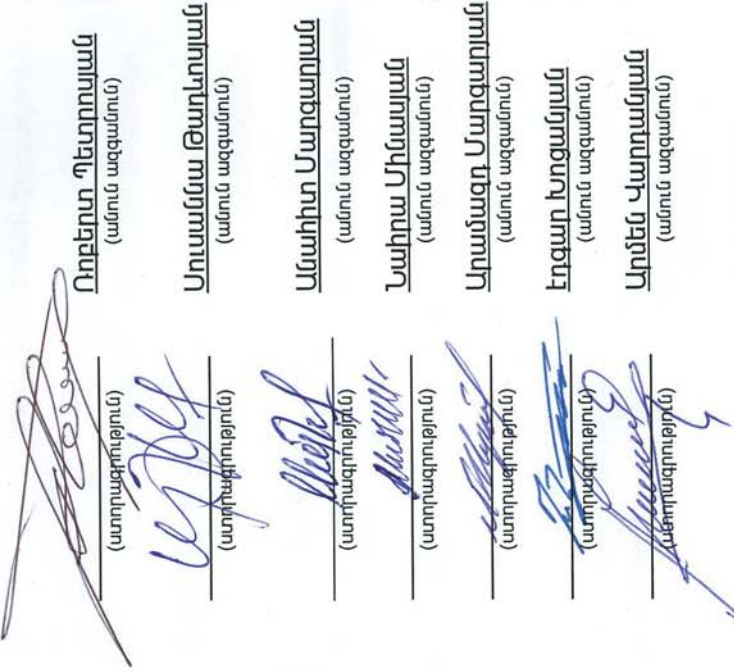 (ստորագրություն) Ռոբերտ Պետրոսյան
(անուն ազգանուն)
(ստորագրություն) Սուսաննա Թադևոսյան
(անուն ազգանուն)
(ստորագրություն) Անահիտ Մարգարյան
(անուն ազգանուն)
(ստորագրություն) Նաիրա Մինասյան
(անուն ազգանուն)
(ստորագրություն) Արամազդ Մարգարյան
(անուն ազգանուն)
(ստորագրություն) Էդգար Խոցանյան
(անուն ազգանուն)
(ստորագրություն) Արմեն Վարդանյան
(անուն ազգանուն)